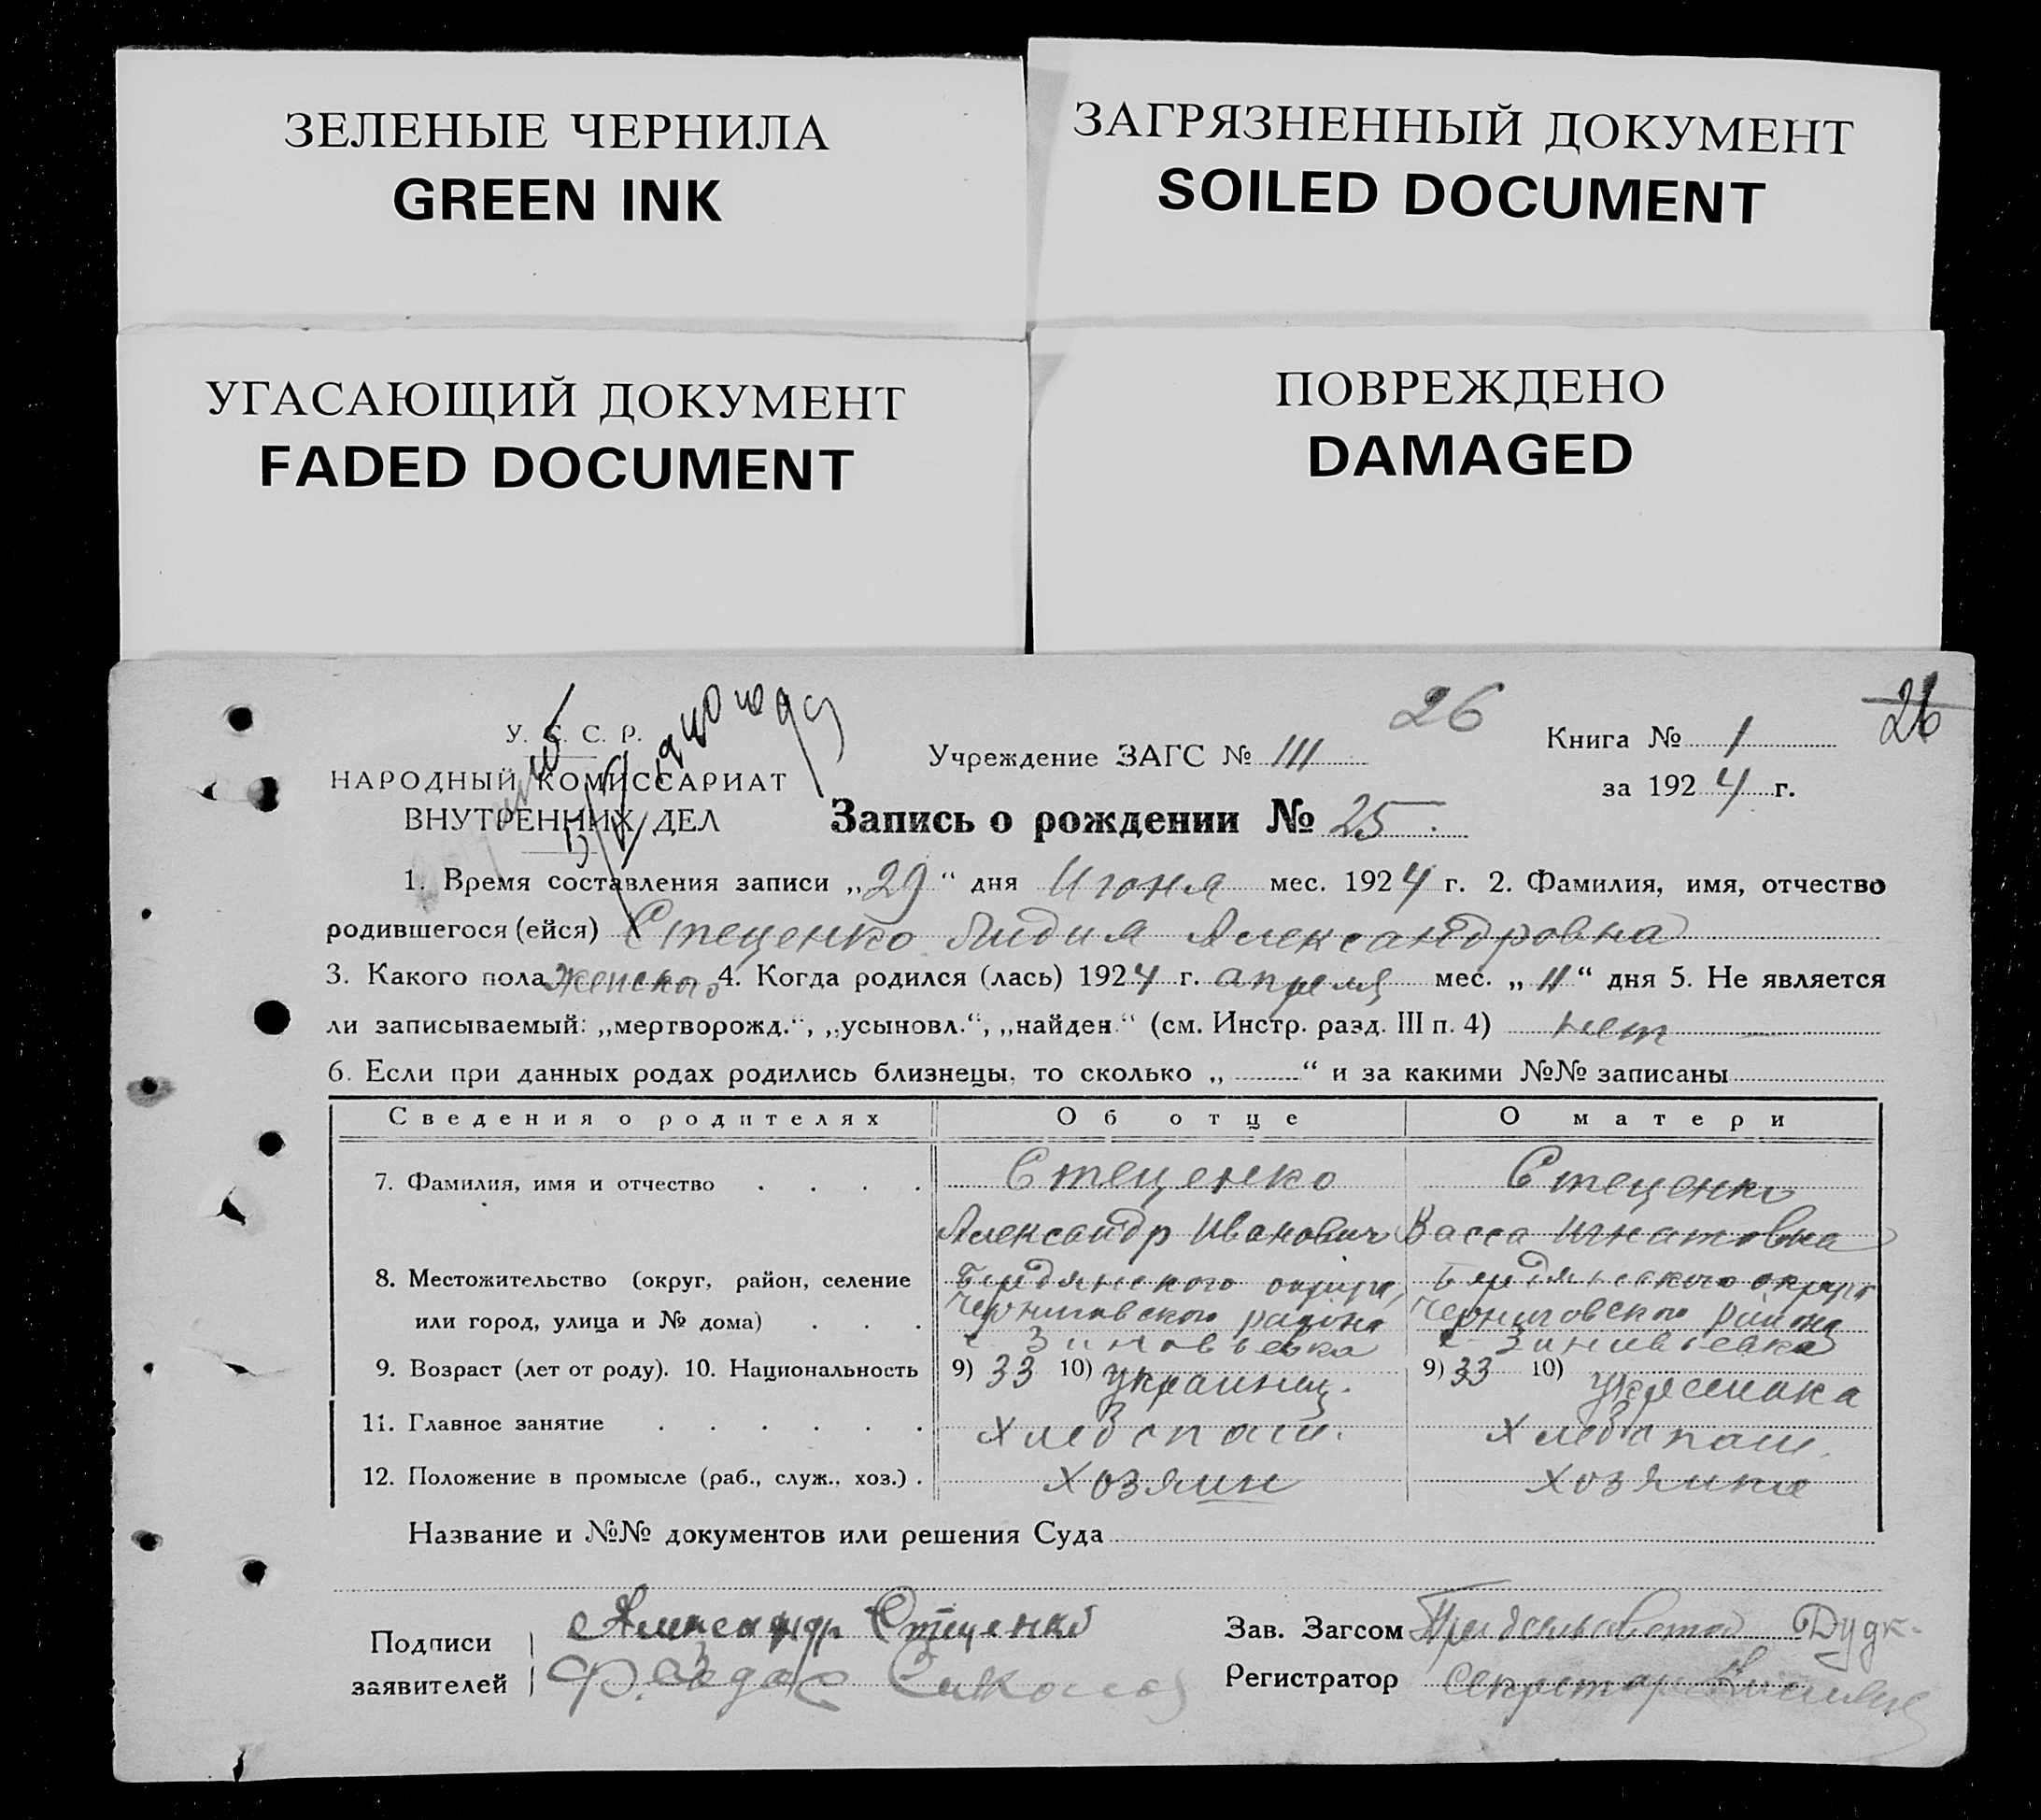 ЗЕЛЕНЫЕ ЧЕРНИЛА
GREEN INK
ЗАГРЯЗНЕННЫЙ ДОКУМЕНТ
SOILED DOCUMENT
УГАСАЮЩИЙ ДОКУМЕНТ
FADED DOCUMENT
ПОВРЕЖДЕНО
DAMAGED
26
26
У. С. С. Р.
НАРОДНЫЙ КОМИССАРИАТ
ВНУТРЕННИХ ДЕЛ
Учреждение ЗАГС № III
Книга № 1
за 1924 г.
Запись о рождении № 25
1. Время составления записи „29“ дня Июня мес. 1924 г. 2. Фамилия, имя, отчество
родившегося (ейся) Стеценко Лидия Александровна
3. Какого пола женского 4. Когда родился (лась) 1924 г. апреля мес. „11“ дня 5. Не является
ли записываемый: „мертворожд.“, „усыновл.“, „найден.“ (см. Инстр. разд. III п. 4) нет
6. Если при данных родах родились близнецы, то сколько „ “ и за какими №№ записаны
Сведения о родителях Об отце О матери
7. Фамилия, имя и отчество Стеценко Стеценко
Александр Иванович Васса Игнатовна
8. Местожительство (округ, район, селение Бердянского округа, Бердянского округа
или город, улица и № дома) Черниговского района Черниговского района
с Зиновьевка с Зиновьевка
9. Возраст (лет от роду). 10. Национальность 9) 33 10) украинец. 9) 33 10) украинка
11. Главное занятие Хлебопаш. Хлебопаш.
12. Положение в промысле (раб., служ., хоз.) хозяин хозяйка
Название и №№ документов или решения Суда
Подписи Александр Стеценко
заявителей
Зав. Загсом Предсельсовета Дудк.
Регистратор Секретарь